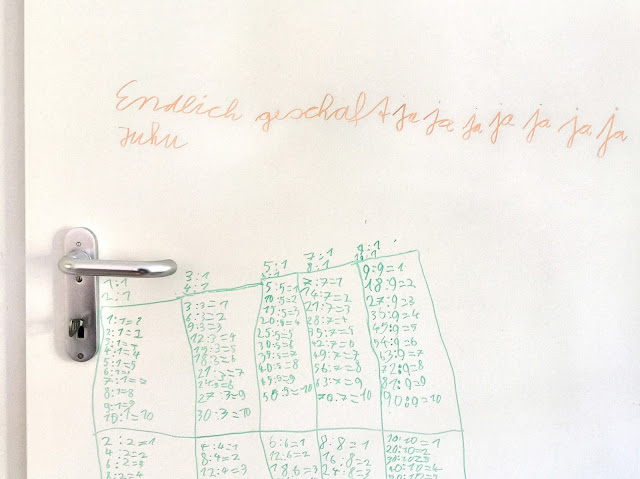 Endlich geschaft ja ja ja ja ja ja ja
Juhu
1:1
2:1
3:1
4:1
5:1
6:1
7:1
8:1
9:1
10:1
1:1=1
3:1=
4:1=4
5:1=5
7:1=7
8:1=8
9:1=9
10:1=10
3:3=1
6:3=2
9:3=3
12:3=4
15:3=5
18:3=6
21:3=7
24:3=
27:3=9
30:3=10
5:5=1
10:5=2
15:5=3
20:5=4
25:5=5
30:5=6
35:5=7
40:5=8
45:5=9
50:5=10
7:7=1
14:7=2
21:7=3
28:7=4
35:7=5
42:7=6
49:7=7
56:7=8
63:7=9
70:7=10
9:9=1
18:9=2
27:9=3
36:9=4
45:9=5
54:9=6
63:9=7
72:9=8
81:9=9
90:9=10
2:2=1
4:2=2
6:2=3
8:2=4
4:4=1
8:4=2
12:4=3
6:6=1
12:6=2
18:6=3
8:8=1
16:8=2
24:8=3
10:10=1
20:10=2
30:10=3
40:10=4